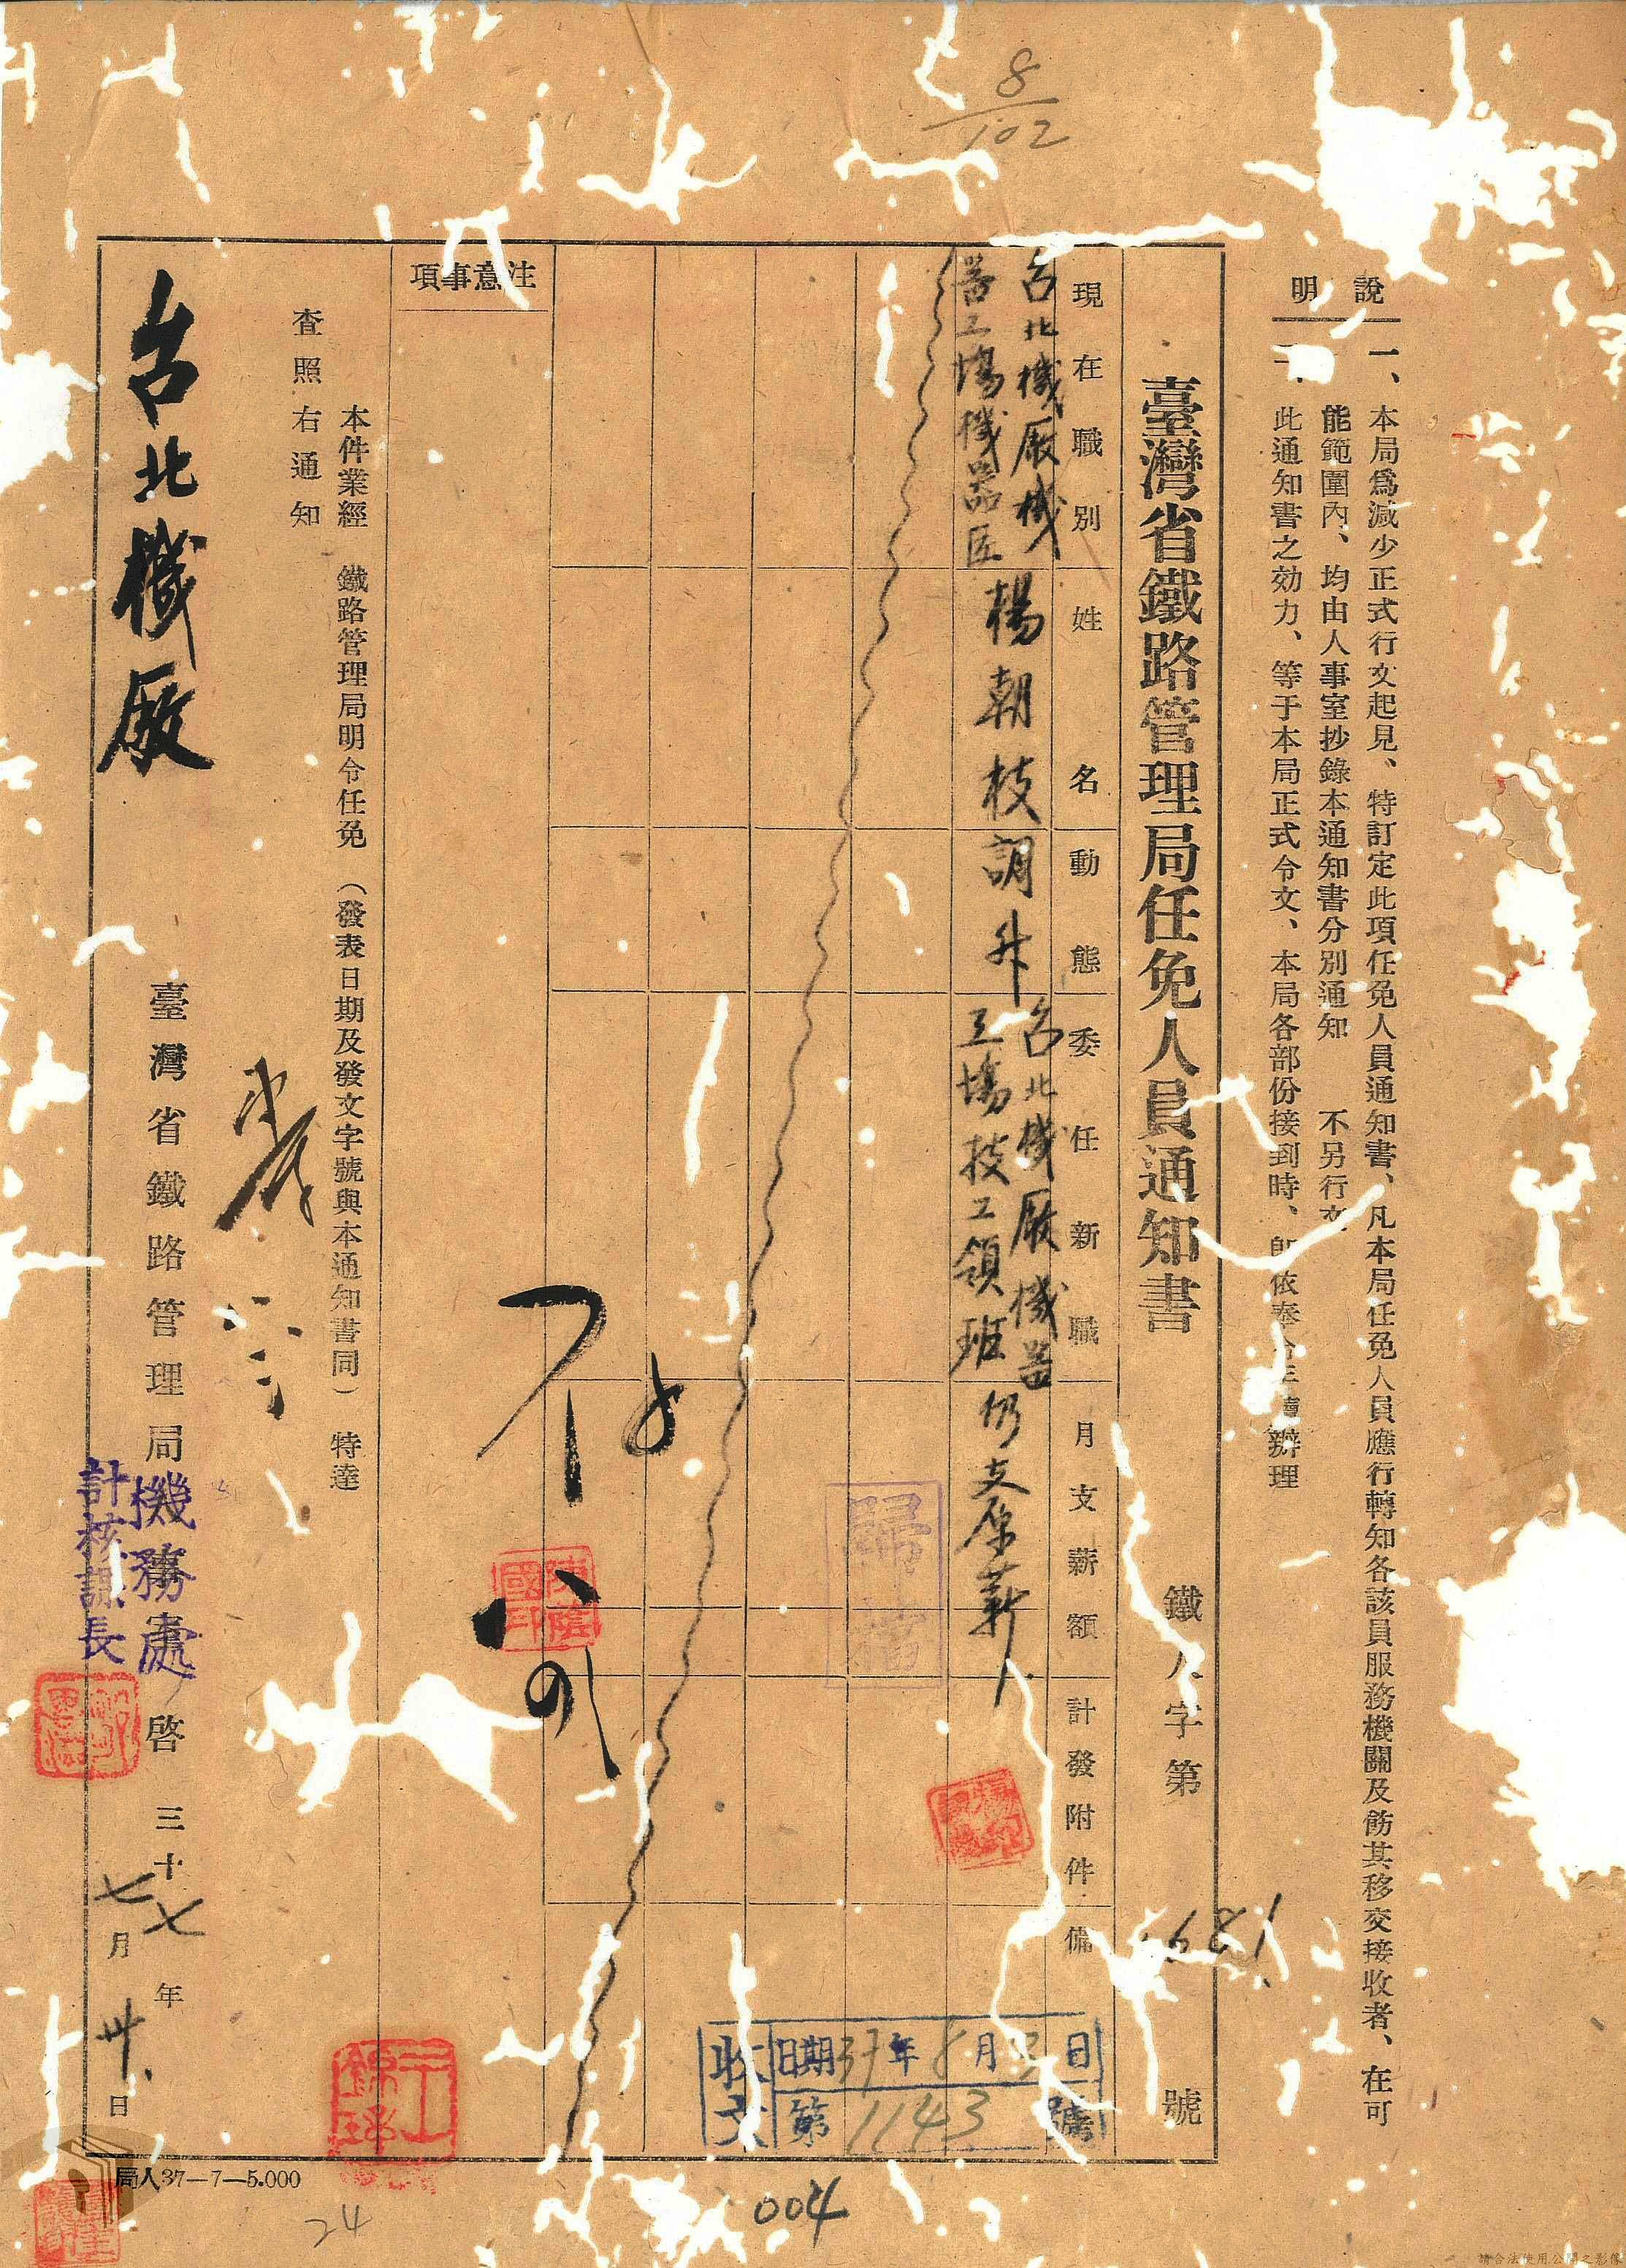 8
102
說明
一、本局爲減少正式行文起見、特訂定此項任免人員通知書、凡本局任免人員應行轉知各該員服務機關及飭其移交接收者、在可
能範圍內、均由人事室抄錄本通知書分別通知 不另行文
此通知書之効力、等于本局正式令文、本局各部份接到時、卽依奉令手續辦理
臺灣省鐵路管理局任免人員通知書
鐵人字第 681 號
現在職別
姓名
動態
委任新職
月支薪額
計發附件
備
台北機厰機
器工場機器匠
楊朝枝
調升
台北機厰機器
工場技工領班
仍支原薪
歸檔
收文
日期37年8月 日
第1143號
注意事項
本件業經 鐵路管理局明令任免 (發表日期及發文字號與本通知書同) 特達
查照右通知
台北機厰
臺灣省鐵路管理局 啓
機務處
計核課長
三十七年
七月卅日
局人37—7—5.000
24
004
請合法使用公開之影像